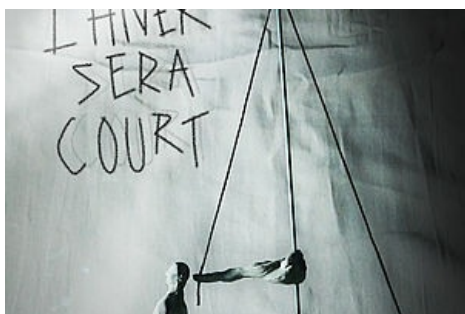 L'HIVER
SERA
COURT